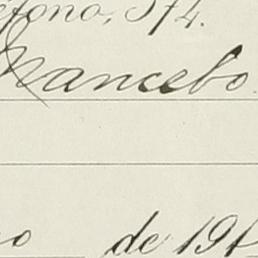 éfono, 574.
Mancebo
o de 191